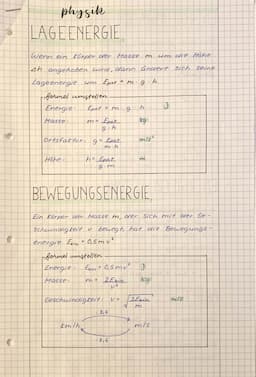 physik
LAGEENERGIE
Wenn ein Körper der Masse m um die Höhe
Δh angehoben wird, dann ändert sich seine
Lageenergie um Epot = m · g · h
formel umstellen
Energie: Epot = m · g · h J
Masse: m = Epot / g · h kg
Ortsfaktor: g = Epot / m · h m/s²
Höhe: h = Epot / g · m m
BEWEGUNGSENERGIE
Ein Körper der Masse m, der sich mit der Ge-
schwindigkeit v bewegt, hat die Bewegungs-
energie Ekin = 0,5 m v²
formel umstellen
Energie: Ekin = 0,5 m v² J
Masse: m = 2Ekin / v² kg
Geschwindigkeit: v = √2Ekin / m m/s
3,6
km/h m/s
3,6